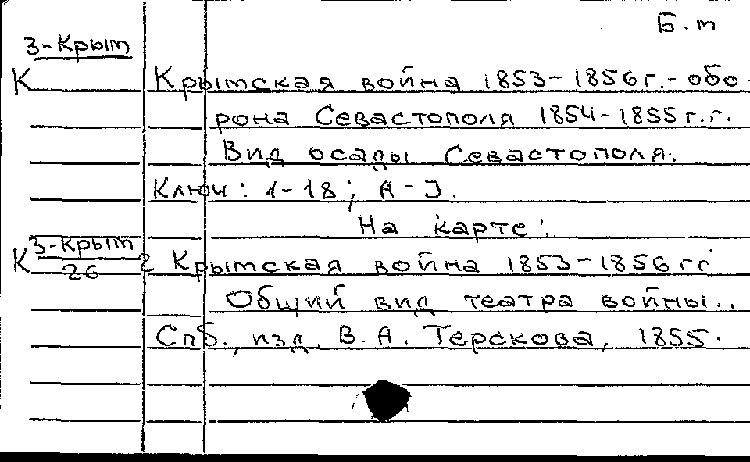 Б.т
3-Крым
К Крымская война 1853-1856г.-обо-
рона Севастополя 1854-1855г.г.
Вид осады Севастополя.
Ключ: 1-18; А-J.
На карте:
К 3-Крым
26 2 Крымская война 1853-1856гг
Общий вид театра войны..
Спб., изд. В.А. Терскова, 1855.